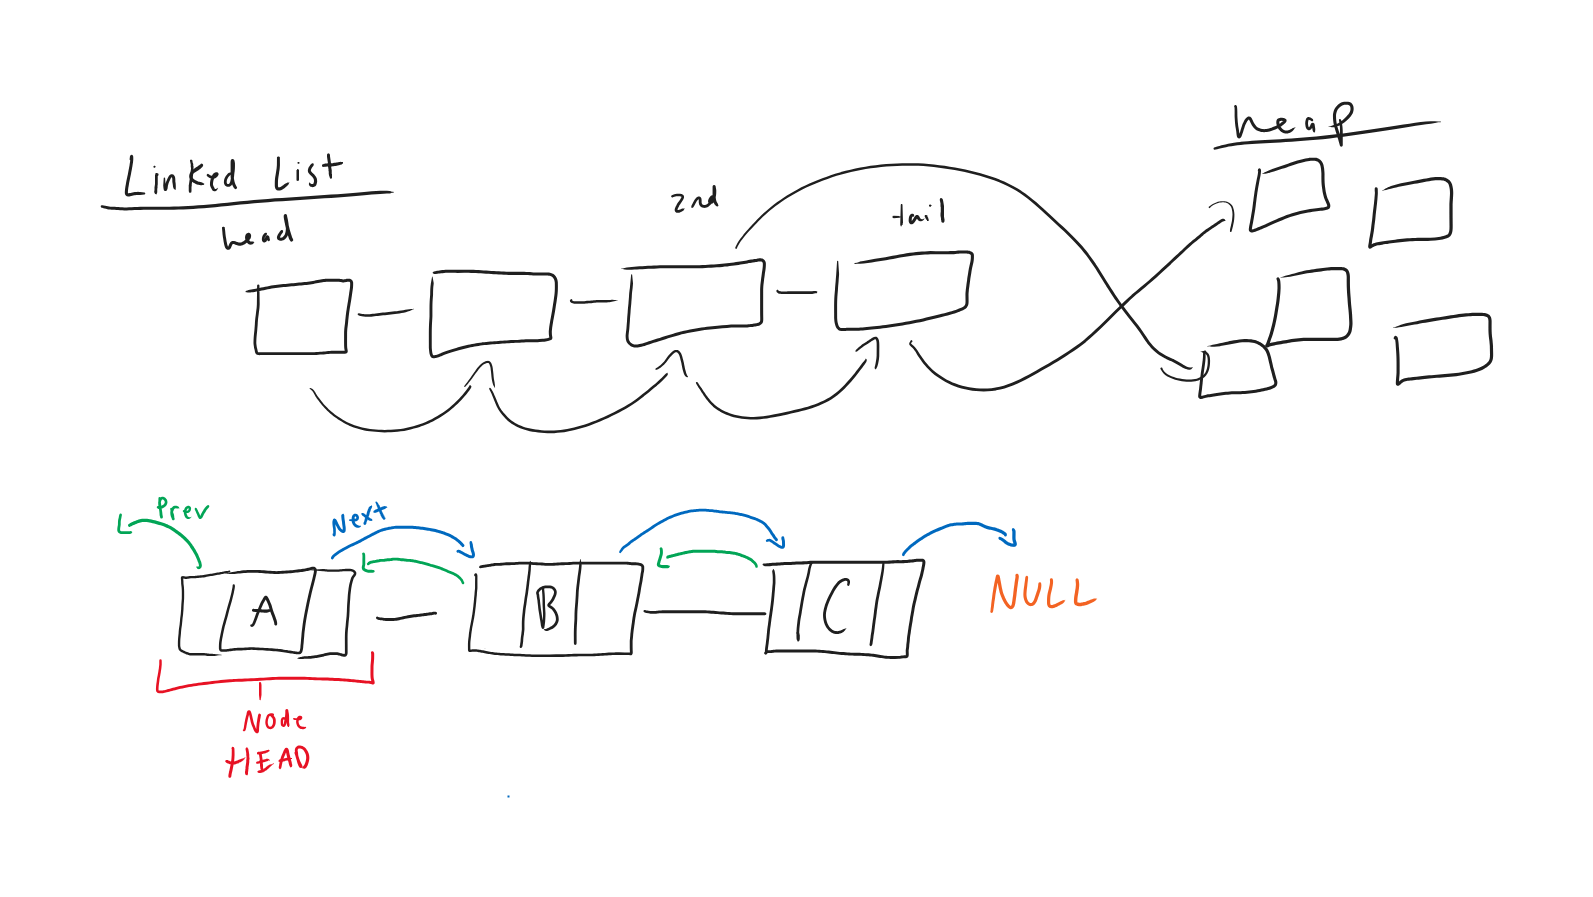 heap
Linked List
2nd
tail
head
Prev
Next
A
B
C
NULL
Node
HEAD